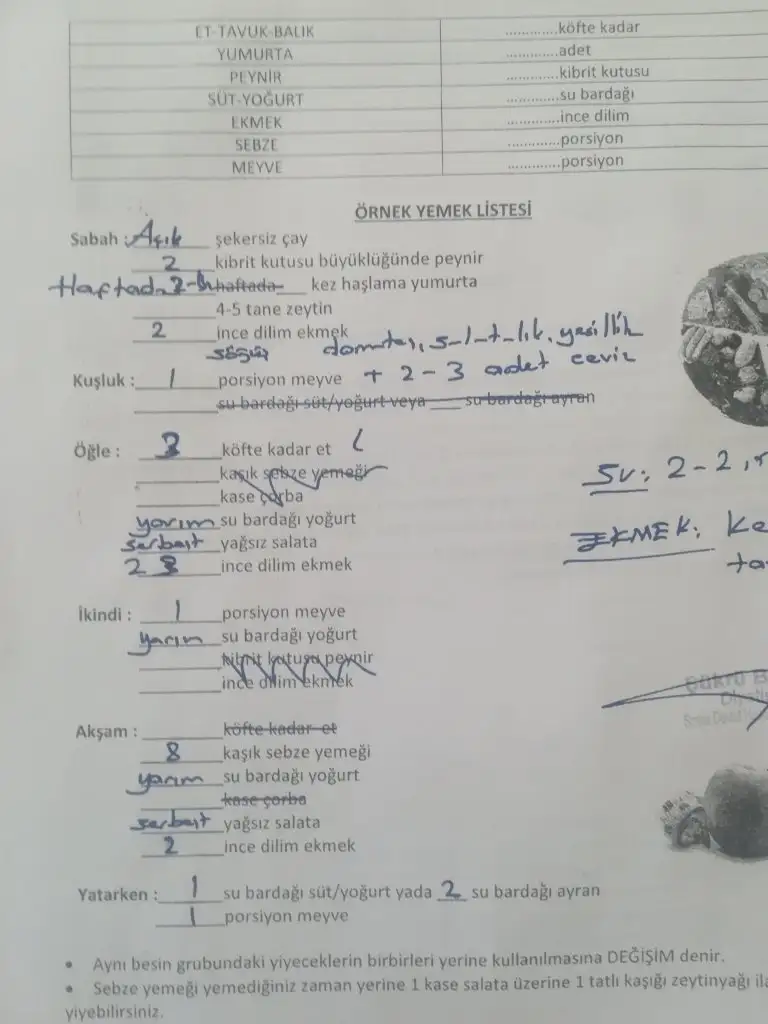 ET-TAVUK-BALIK .............köfte kadar
YUMURTA .............adet
PEYNİR .............kibrit kutusu
SÜT-YOĞURT .............su bardağı
EKMEK .............ince dilim
SEBZE .............porsiyon
MEYVE .............porsiyon
ÖRNEK YEMEK LİSTESİ
Sabah : Açık şekersiz çay
2 kıbrit kutusu büyüklüğünde peynir
Haftada haftada kez haşlama yumurta
4-5 tane zeytin
2 ince dilim ekmek
söğüş domates, salatalık, yeşillik
Kuşluk : 1 porsiyon meyve + 2-3 adet ceviz
su bardağı süt/yoğurt veya ___ su bardağı ayran
Öğle : 3 köfte kadar et
kaşık sebze yemeği
kase çorba
yarım su bardağı yoğurt
serbest yağsız salata
2 ince dilim ekmek
SU: 2-2,
EKMEK: Ke
ta
İkindi : 1 porsiyon meyve
yarım su bardağı yoğurt
kibrit kutusu peynir
ince dilim ekmek
Akşam : köfte kadar et
8 kaşık sebze yemeği
yarım su bardağı yoğurt
kase çorba
serbest yağsız salata
2 ince dilim ekmek
Yatarken : 1 su bardağı süt/yoğurt yada 2 su bardağı ayran
1 porsiyon meyve
• Aynı besin grubundaki yiyeceklerin birbirleri yerine kullanılmasına DEĞİŞİM denir.
• Sebze yemeği yemediğiniz zaman yerine 1 kase salata üzerine 1 tatlı kaşığı zeytinyağı ila
yiyebilirsiniz.